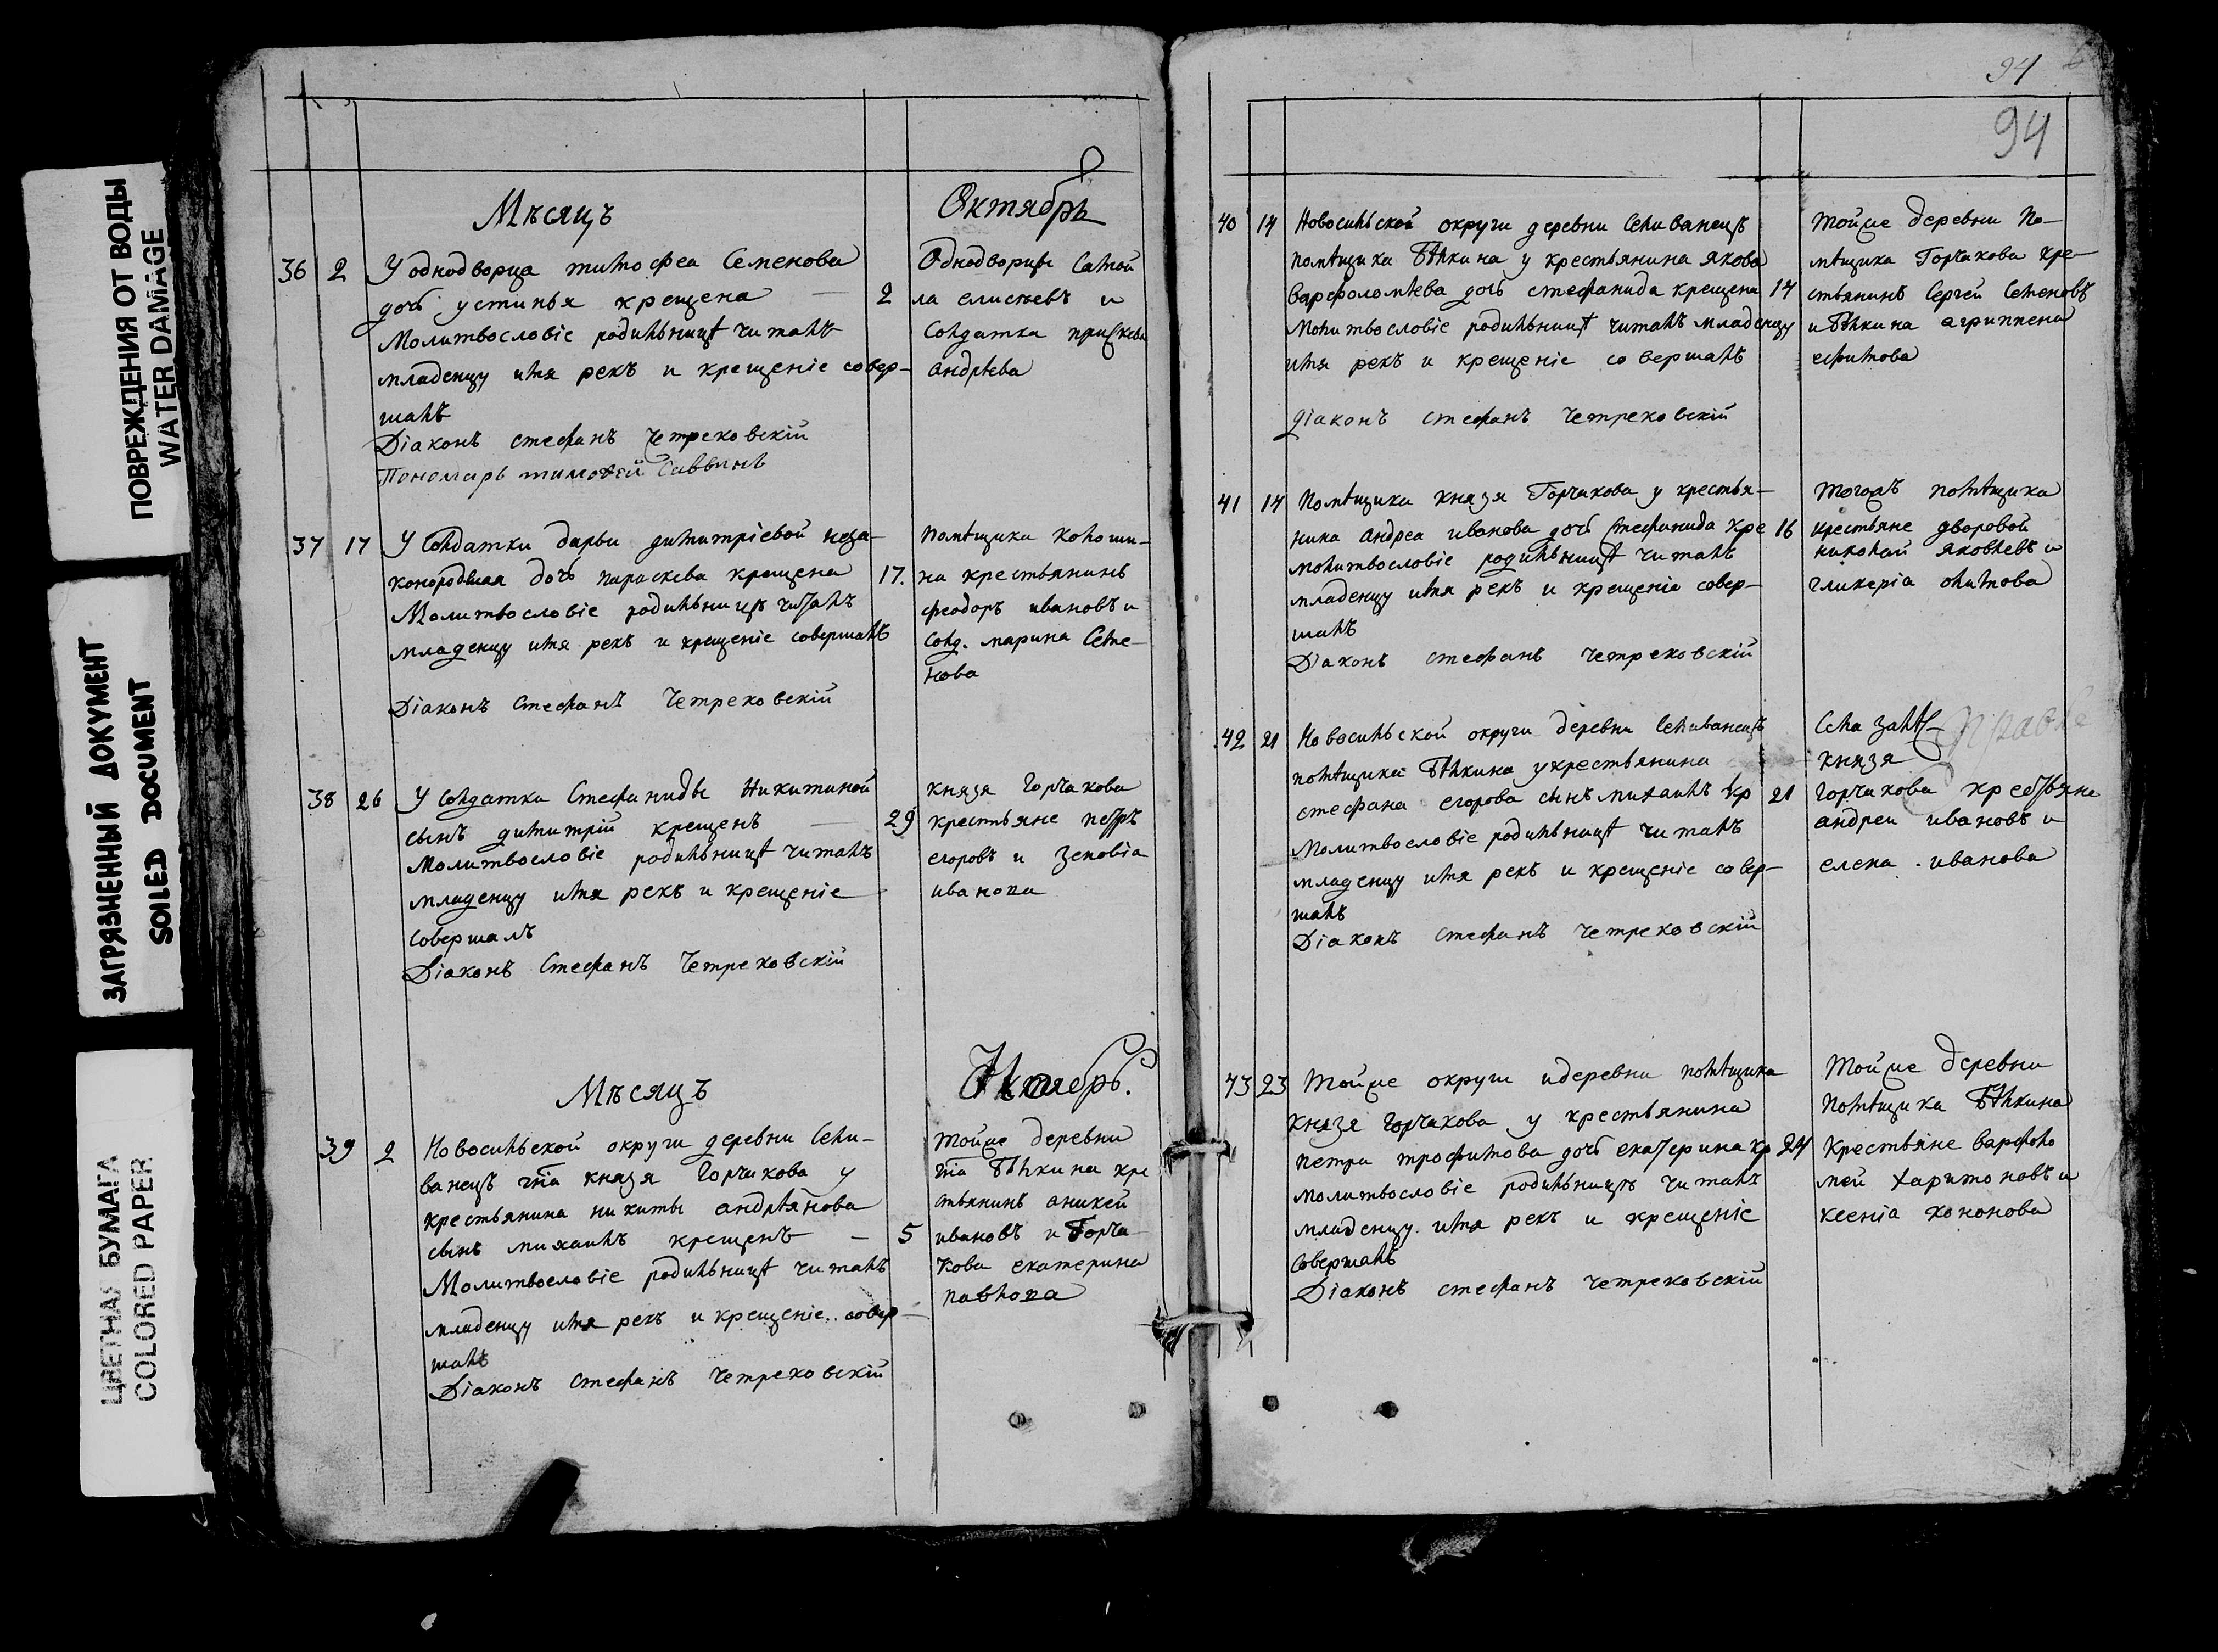 ПОВРЕЖДЕНИЯ ОТ ВОДЫ
WATER DAMAGE
ЗАГРЯЗНЕННЫЙ ДОКУМЕНТ
SOILED DOCUMENT
ЦВЕТНАЯ БУМАГА
COLORED PAPER
Мѣсяцъ Октябрь
36 2 У однодворца тимофеа Семенова
дочь устинья крещена — 2
Молитвословіе родильницѣ читалъ
младенцу имя рекъ и крещеніе совер-
шалъ
Діаконъ стефанъ Четрековскій
Пономарь тимофей Саввинъ
Однодворцы Самой
ла елисѣевъ и
Солдатка
андрѣева
37 17 У Солдатки дарьи димитріевой неза-
конородшая дочь параскева крещена 17.
Молитвословіе родильницѣ читалъ
младенцу имя рекъ и крещеніе совершалъ
Діаконъ Стефанъ Четрековскій
помѣщика Колоши-
на крестьянинъ
феодоръ ивановъ и
Солд. марина Семе-
нова
38 26 У Солдатки Стефаниды Никитиной
сынъ димитрій крещенъ — 29
Молитвословіе родильницѣ читалъ
младенцу имя рекъ и крещеніе
совершалъ
Діаконъ Стефанъ Четрековскій
князя Горчакова
крестьяне петръ
егоровъ и Зеновіа
иванова
Мѣсяцъ Ноябрь.
39 2 Новосильской округи деревни Сели-
ванецъ князя Горчакова у
крестьянина никиты андрѣянова
сынъ михаилъ крещенъ — 5
Молитвословіе родильницѣ читалъ
младенцу имя рекъ и крещеніе совер-
шалъ
Діаконъ Стефанъ Четрековскій
тойже деревни
Бѣлкина кре
стьянинъ аникей
ивановъ и Горча-
кова екатерина
павлова
94
94
40 14 Новосильской округи деревни Селиванецъ
помѣщика Бѣлкина у крестьянина якова
варфоломѣева дочь стефанида крещена 14
молитвословіе родильницѣ читалъ младенцу
имя рекъ и крещеніе совершалъ
діаконъ стефанъ четрековскій
тойже деревни По-
мѣщика Горчакова кре-
стьянинъ Сергей Семеновъ
и Бѣлкина агриппена
ефимова
41 14 Помѣщика князя Горчакова у крестья-
нина андреа иванова дочь Стефанида кре 16
молитвословіе родильницѣ читалъ
младенцу имя рекъ и крещеніе совер-
шалъ
Діаконъ стефанъ четрековскій
тогожъ помѣщика
крестьяне дворовой
николай яковлевъ и
гликеріа
42 21 Новосильской округи деревни Селиванецъ
помѣщика Бѣлкина у крестьянина
стефана егорова сынъ михаилъ кр 21
Молитвословіе родильницѣ читалъ
младенцу имя рекъ и крещеніе совер-
шалъ
Діаконъ стефанъ четрековскій
Села
князя
горчакова крестьяне
андреи ивановъ и
елена иванова
43 23 Тойже округи идеревни помѣщика
князя горчакова у крестьянина
петра трофимова дочь екатерина кр 24
молитвословіе родильницѣ читалъ
младенцу имя рекъ и крещеніе
совершалъ
Діаконъ стефанъ четрековскій
Тойже деревни
помѣщика Бѣлкина
крестьяне варфоло
мей харитоновъ и
ксеніа кононова